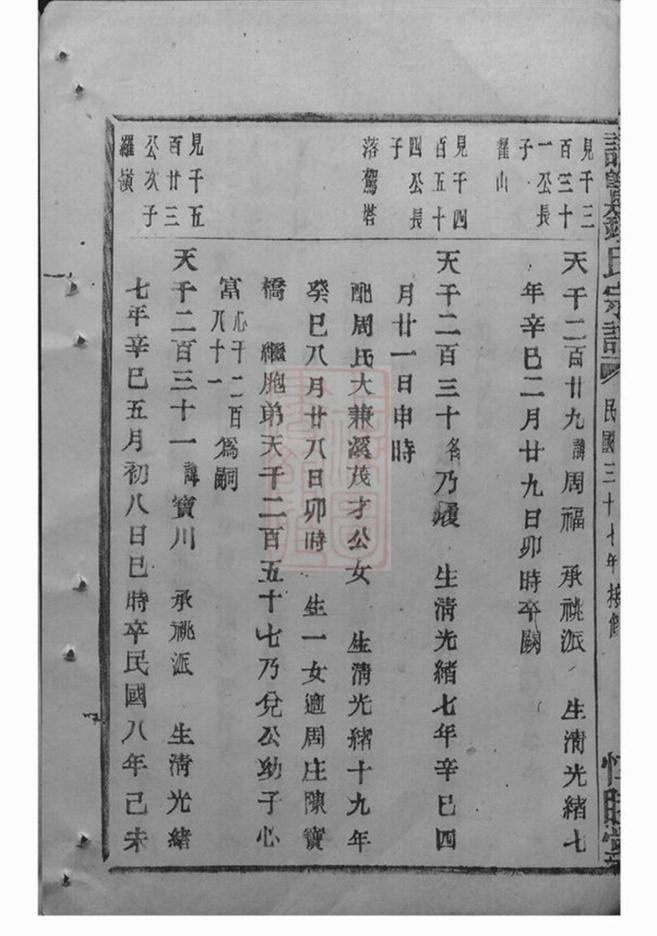 民國三十七年
見千三
百三十
一公長
子
霍山
天千二百廿九諱周福 承祧派 生清光緒七
年辛巳二月廿九日卯時卒闕
見千四
百五十
四公長
子
落駕塔
天千二百三十名乃 生清光緒七年辛巳四
月廿一日申時
配周氏大兼溪茂才公女 生清光緒十九年
癸巳八月廿八日卯時 生一女適周庄陳寶
橋 繼胞弟天千二百五十七乃兌公幼子心
富心千二百八十一為嗣
見千五
百廿三
公次子
羅嶺
天千二百三十一諱寶川 承祧派 生清光緒
七年辛巳五月初八日巳時卒民國八年己未